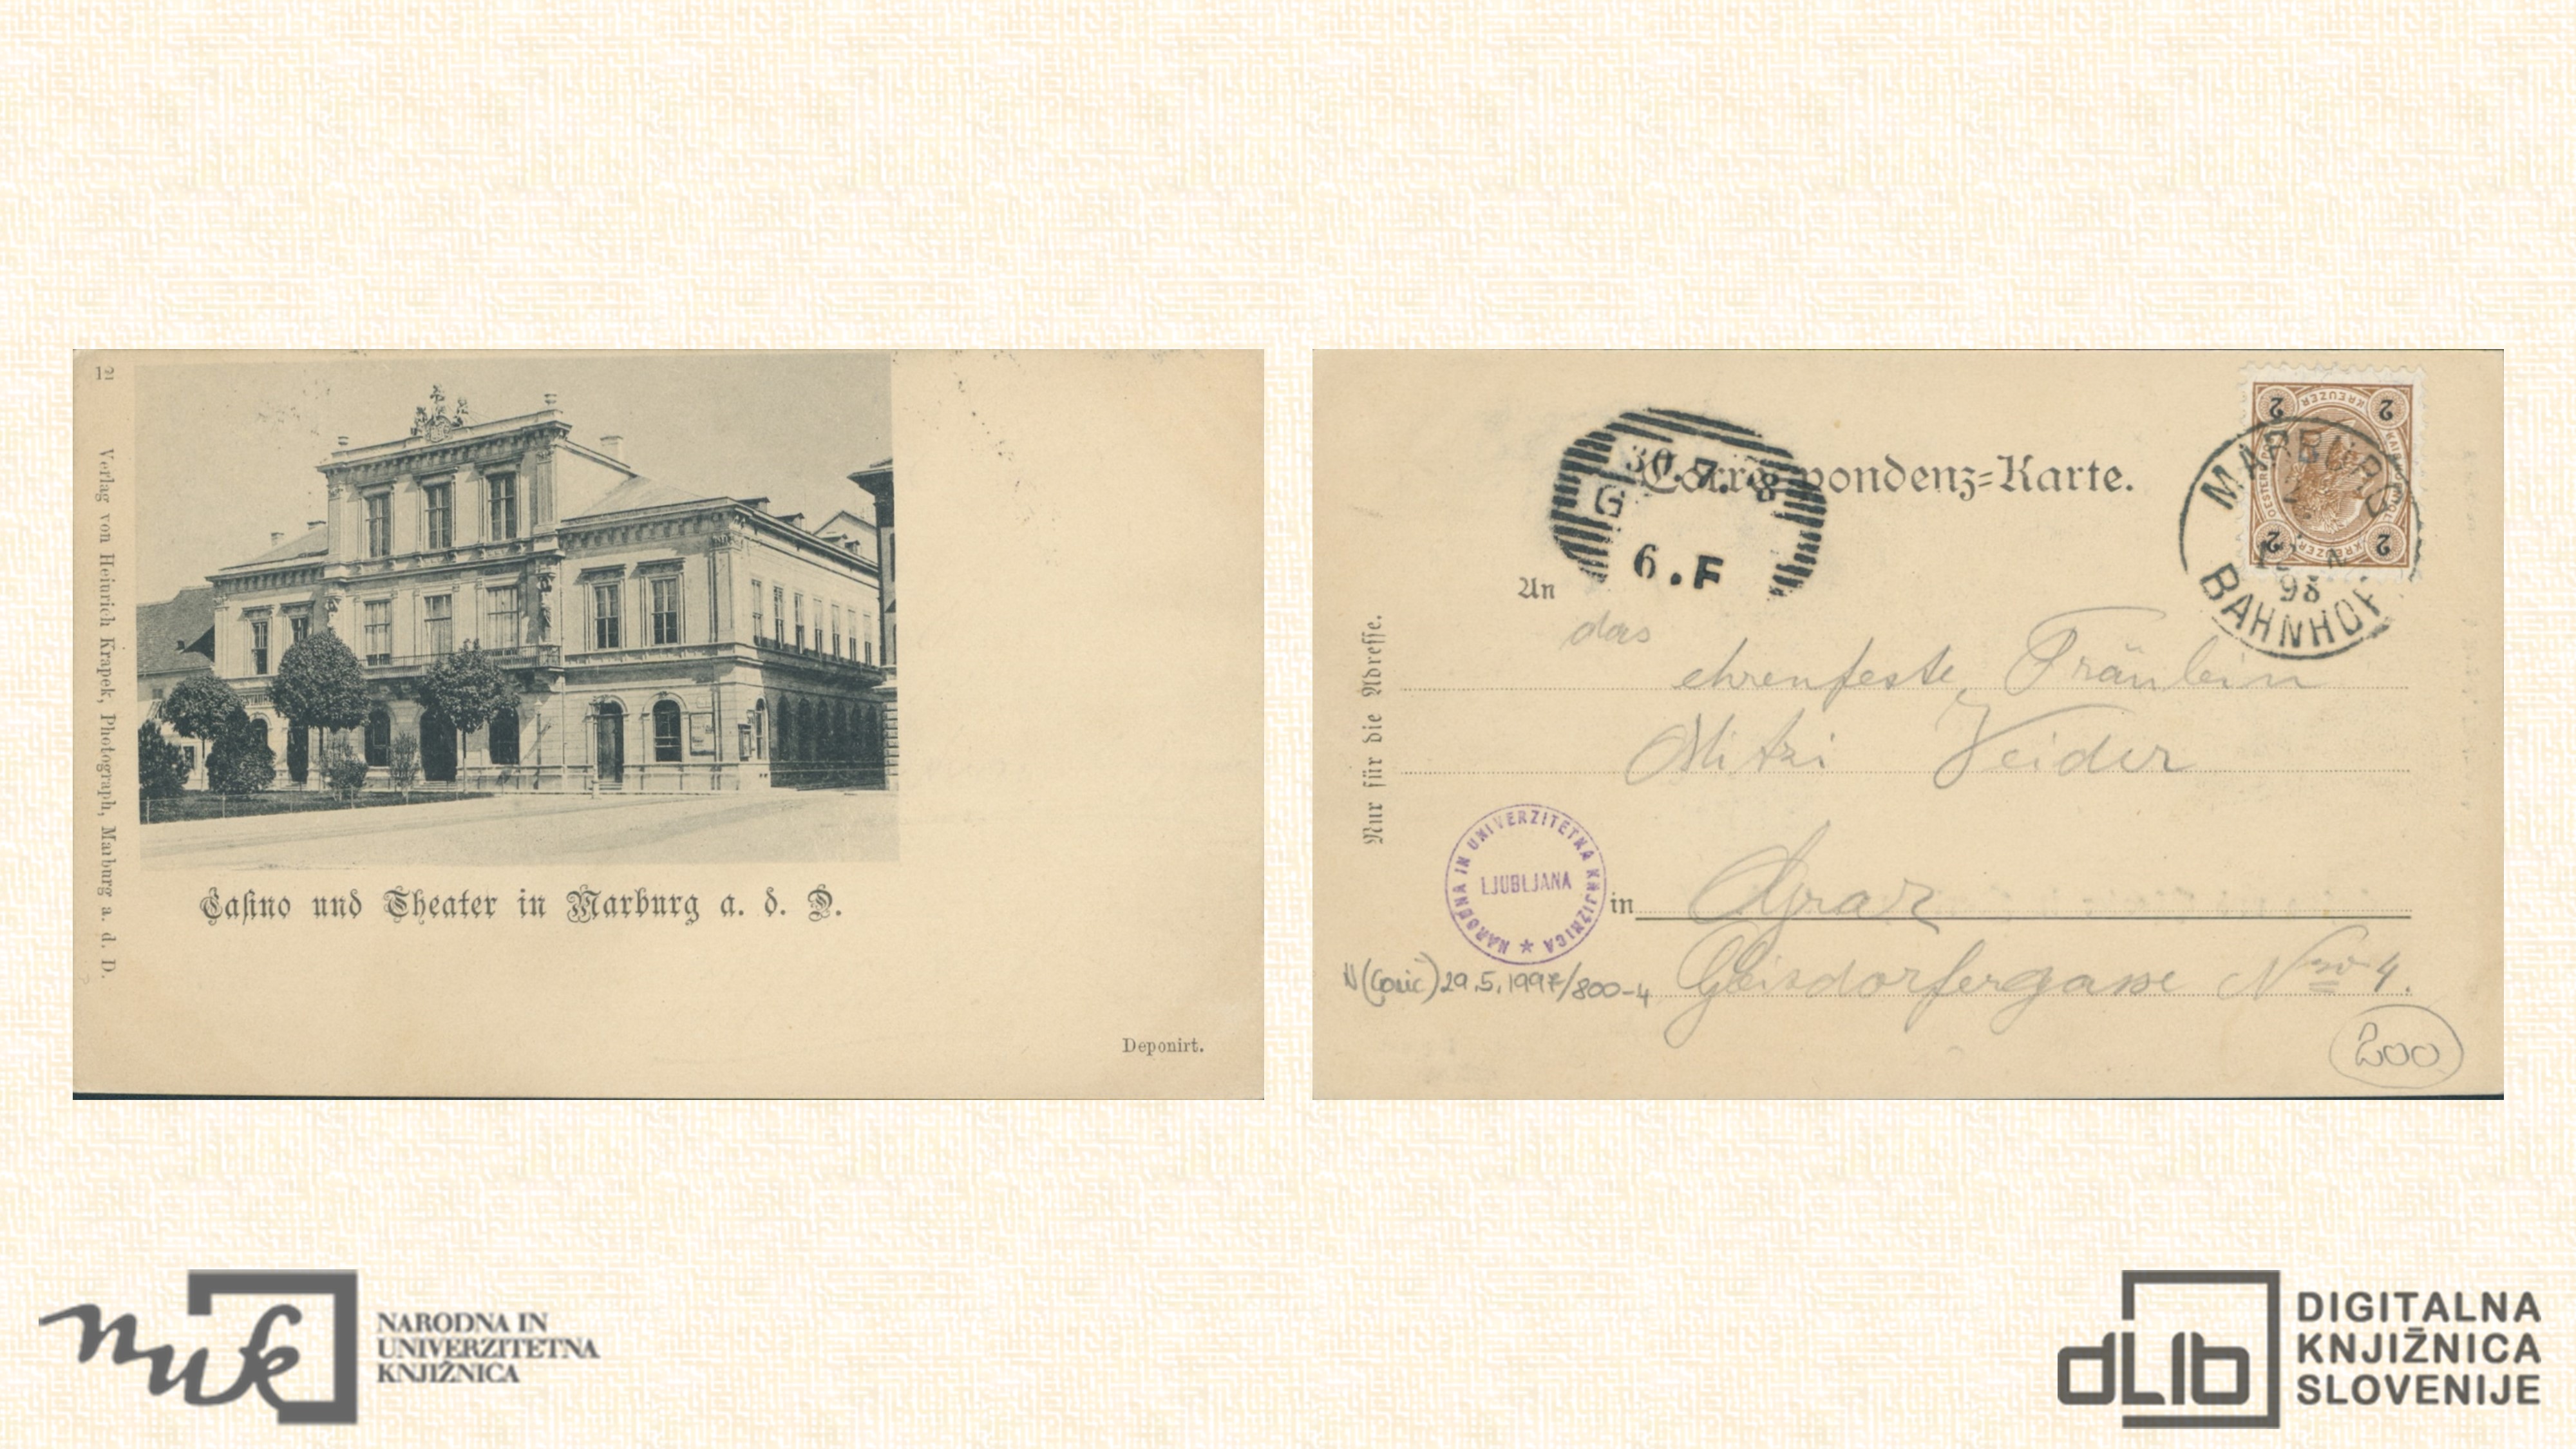 12
Verlag von Heinrich Krapek, Photograph, Marburg a. d. D.
Casino und Theater in Marburg a. d. D.
Deponirt.
Correspondenz=Karte.
30.7. 8
G
6.F
2 KREUZER 2
2 KREUZER 2
MARBURG
98
BAHNHOF
An
das
ehrenfeste Fräulein
Mitzi Veider
Nur für die Adresse.
NARODNA IN UNIVERZITETNA KNJIŽNICA
LJUBLJANA
in Graz
Geisdorfergasse Nro 4.
29.5.1997/800-4
200
nuk
NARODNA IN
UNIVERZITETNA
KNJIŽNICA
dLib
DIGITALNA
KNJIŽNICA
SLOVENIJE